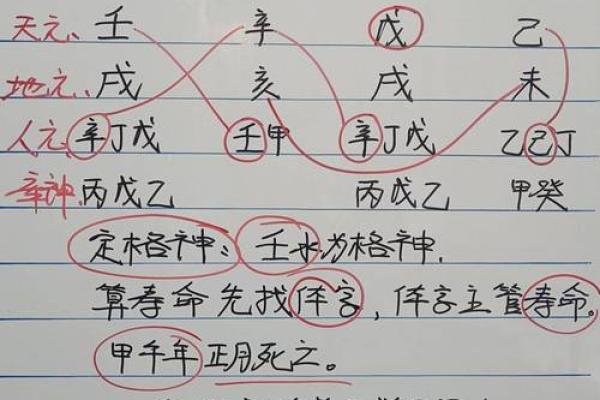 天元、壬 辛 戊 己
地元、戌 亥 戌 未
人元、辛丁戊 壬甲 辛丁戊 乙己丁
丙戊乙 丙戊乙 甲癸
定格神：壬水为格神．
算寿命先找体字，体字主管寿命。
甲午年正月死亡。